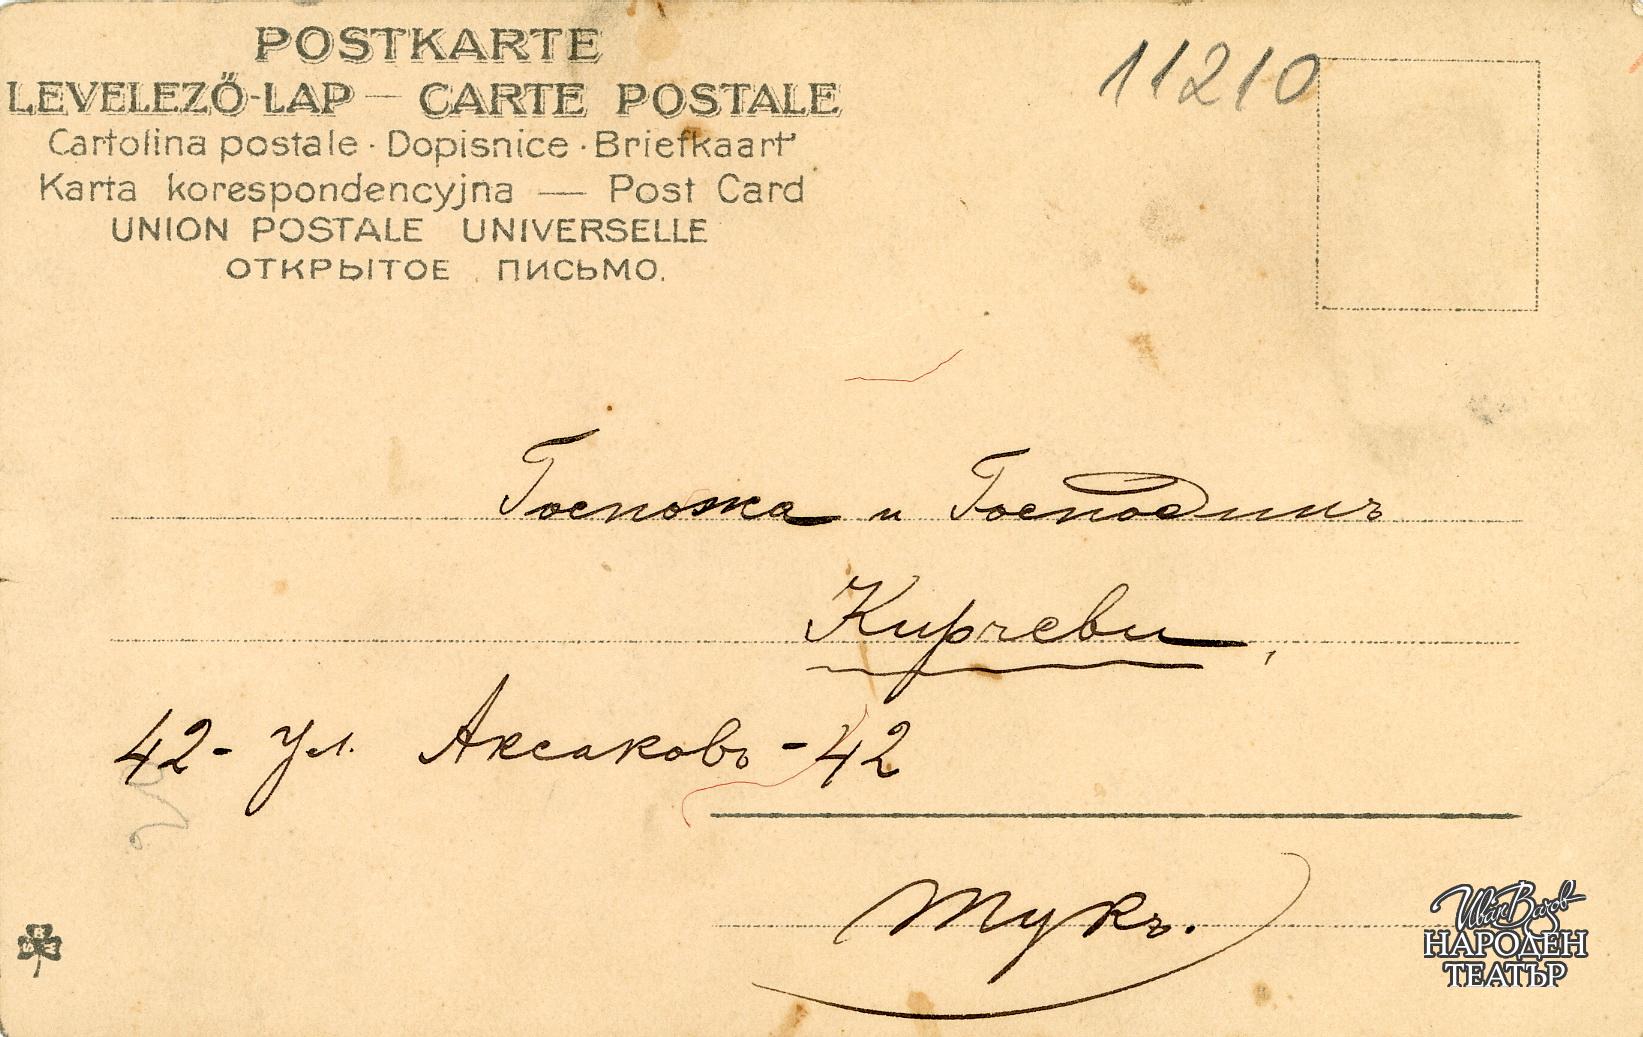 POSTKARTE
LEVELEZŐ-LAP — CARTE POSTALE
Cartolina postale · Dopisnice · Briefkaart
Karta korespondencyjna — Post Card
UNION POSTALE UNIVERSELLE
ОТКРЫТОЕ ПИСЬМО.
11210
Госпожа и Господинъ
Кирчеви,
42 - ул. Аксаковъ - 42
Тукъ.
Иван Вазов
НАРОДЕН
ТЕАТЪР